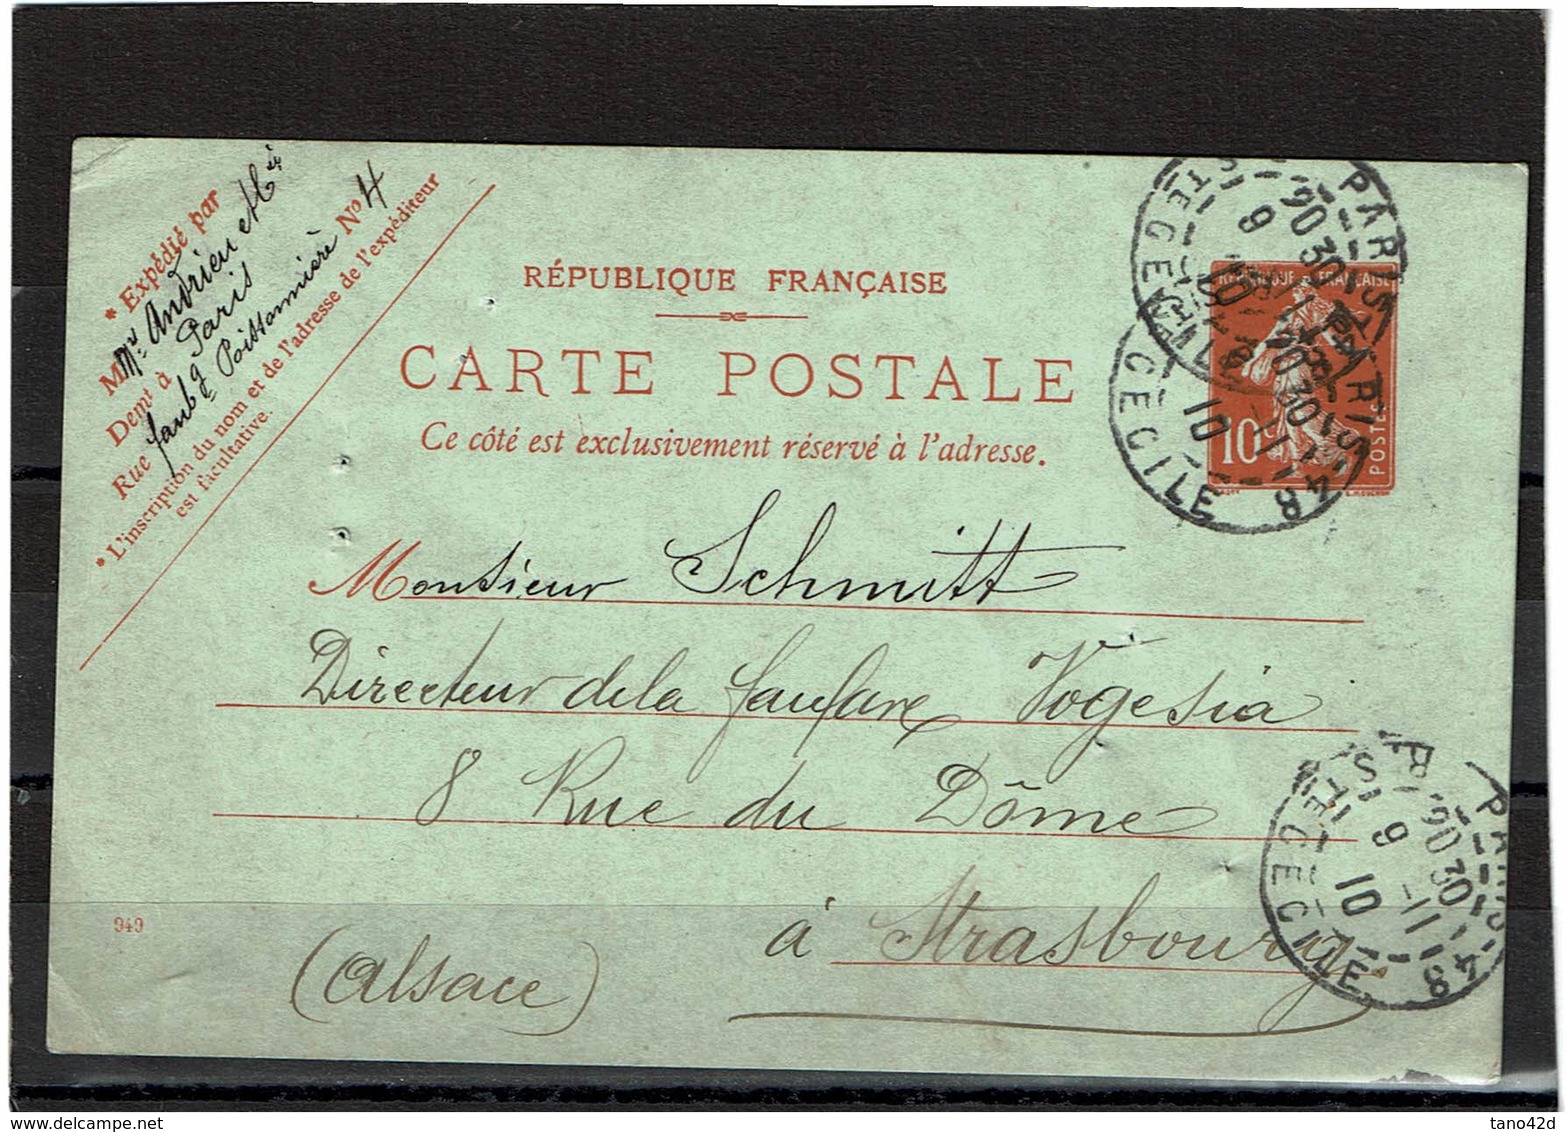 * Expédié par
Mr. Andrieu Mce
Demt à Paris
Rue faubg Poissonnière No 4
* L'inscription du nom et de l'adresse de l'expéditeur
est facultative.
RÉPUBLIQUE FRANÇAISE
CARTE POSTALE
Ce côté est exclusivement réservé à l'adresse.
RÉPUBLIQUE FRANÇAISE
10
POSTES
PARIS - 48
STE CECILE
PARIS - 48
CECILE
10
Monsieur Schmitt
Directeur de la fanfare Vogesia
8 Rue du Dôme
à Strasbourg
(Alsace)
949
PARIS - 48
R. STE CECILE
9 30
9 - 11
10
tano42d